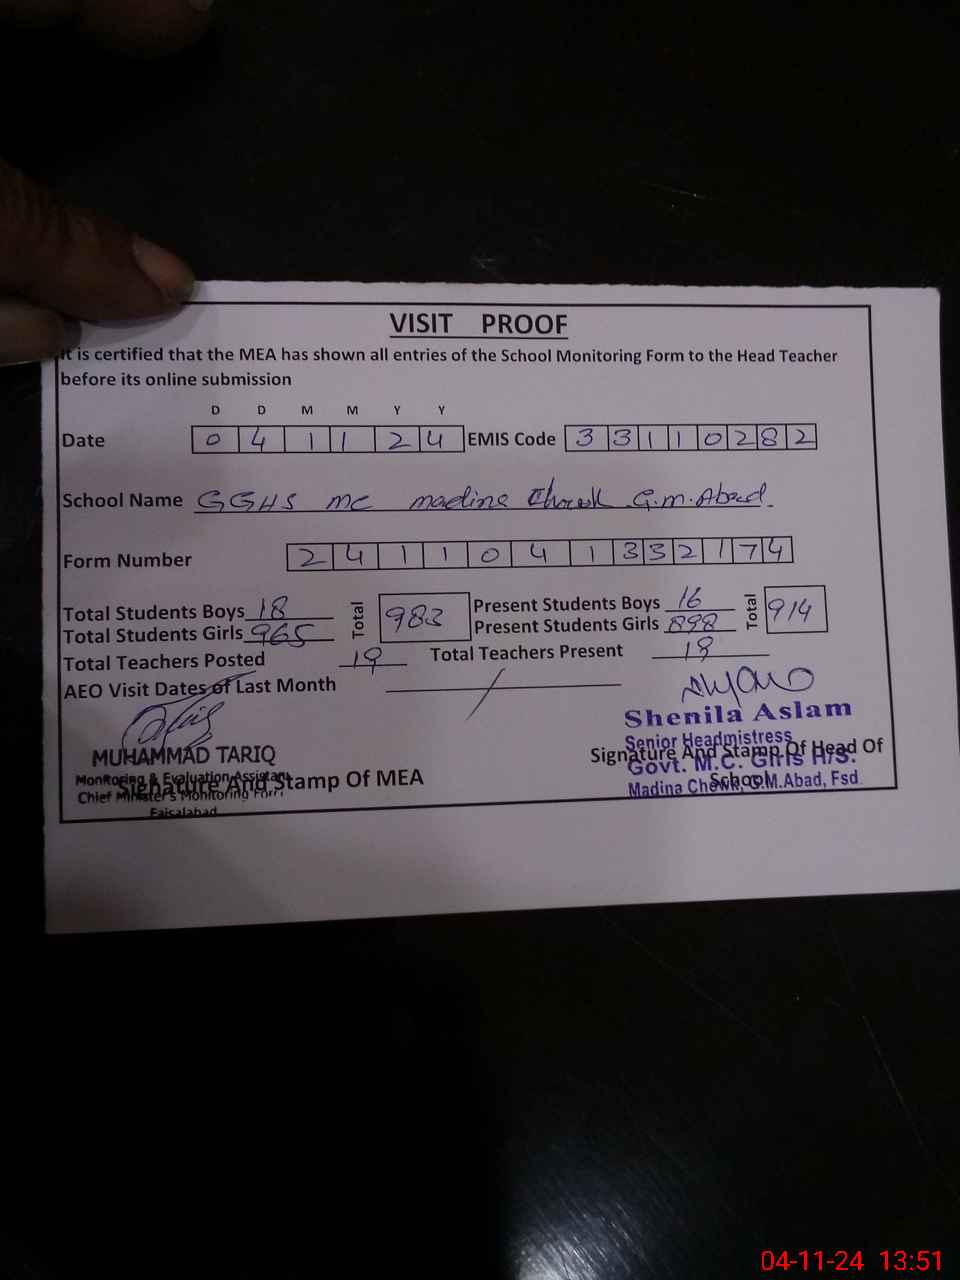 VISIT PROOF
It is certified that the MEA has shown all entries of the School Monitoring Form to the Head Teacher
before its online submission
D D M M Y Y
Date 0 4 1 1 2 4 EMIS Code 3 3 1 1 0 2 8 2
School Name GGHS MC Madina Chowk G.M.Abad.
Form Number 2 4 1 1 0 4 1 3 3 2 1 7 4
Total Students Boys 18 Total 983 Present Students Boys 16 Total 914
Total Students Girls 965 Present Students Girls 898
Total Teachers Posted 19 Total Teachers Present 19
AEO Visit Dates of Last Month
MUHAMMAD TARIQ
Monitoring & Evaluation Assistant
Chief Minister's Monitoring Force
Faisalabad
Signature And Stamp Of MEA
Shenila Aslam
Senior Headmistress
Govt. M.C. Girls H/S.
Madina Chowk, G.M.Abad, Fsd.
Signature And Stamp Of Head Of
School
04-11-24 13:51